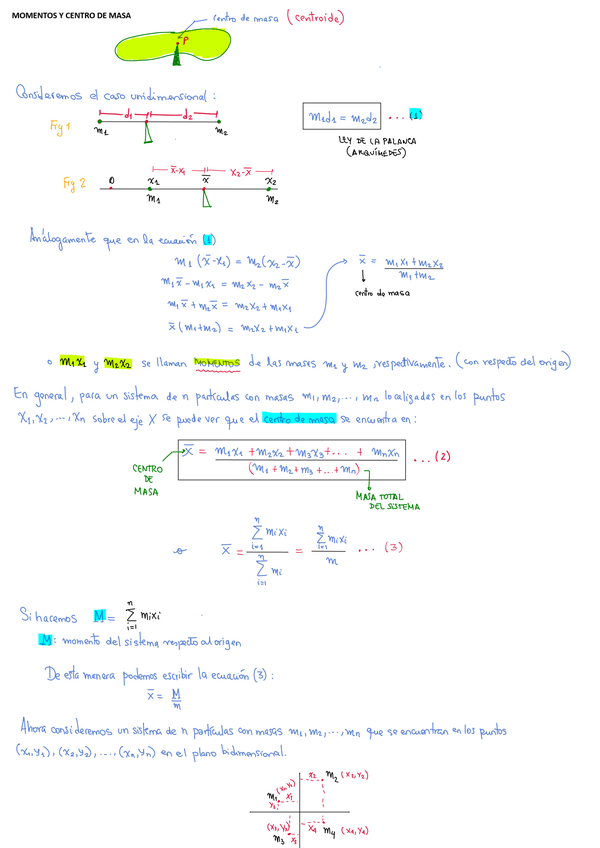 MOMENTOS Y CENTRO DE MASA
centro de masa (centroide)
P
Consideremos el caso unidimensional:
Fig 1
d₁ d₂
m₁ m₂
m₁d₁ = m₂d₂ ... (1)
LEY DE LA PALANCA
(ARQUÍMEDES)
Fig 2
x̄-x₁ x₂-x̄
0 x₁ x̄ x₂
m₁ m₂
Análogamente que en la ecuación (1)
m₁ (x̄-x₁) = m₂(x₂-x̄)
m₁x̄ - m₁x₁ = m₂x₂ - m₂x̄
m₁x̄ + m₂x̄ = m₂x₂ + m₁x₁
x̄ (m₁+m₂) = m₂x₂ + m₁x₁
x̄ = (m₁x₁ + m₂x₂) / (m₁+m₂)
centro de masa
o m₁x₁ y m₂x₂ se llaman MOMENTOS de las masas m₁ y m₂, respectivamente. (con respecto del origen)
En general, para un sistema de n partículas con masas m₁, m₂, ..., mₙ localizadas en los puntos
x₁, x₂, ..., xₙ sobre el eje X se puede ver que el centro de masa se encuentra en:
x̄ = (m₁x₁ + m₂x₂ + m₃x₃ + ... + mₙxₙ) / (m₁ + m₂ + m₃ + ... + mₙ) ... (2)
CENTRO
DE
MASA
MASA TOTAL
DEL SISTEMA
o x̄ = (∑ᵢ₌₁ⁿ mᵢxᵢ) / (∑ᵢ₌₁ⁿ mᵢ) = (∑ᵢ₌₁ⁿ mᵢxᵢ) / m ... (3)
Si hacemos M = ∑ᵢ₌₁ⁿ mᵢxᵢ
M: momento del sistema respecto al origen
De esta manera podemos escribir la ecuación (3):
x̄ = M / m
Ahora consideremos un sistema de n partículas con masas m₁, m₂, ..., mₙ que se encuentran en los puntos
(x₁,y₁), (x₂,y₂), ..., (xₙ,yₙ) en el plano bidimensional.
x₂ m₂ (x₂, y₂)
(x₁, y₁)
m₁ x₁
y₁
(x₃, y₃) x₄ m₄ (x₄, y₄)
m₃ x₃